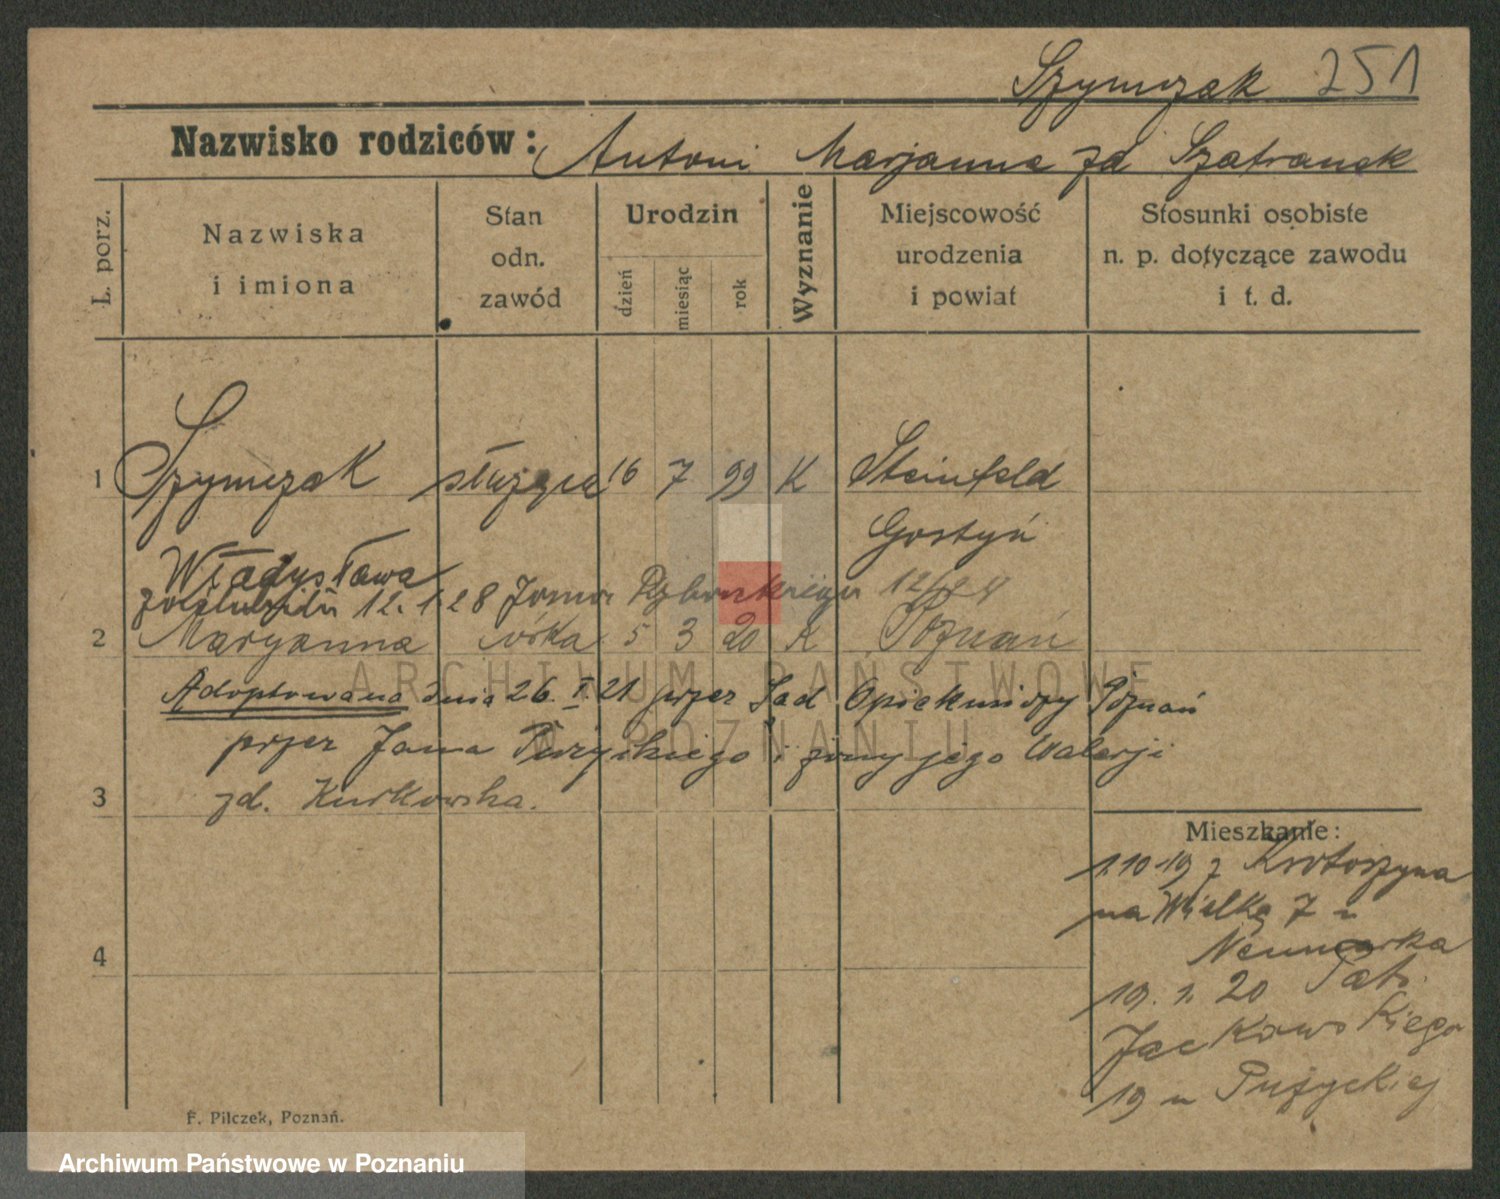 Szymczak 251
Nazwisko rodziców: Antoni Marjanna zd Szatranek
L. porz.
Nazwiska i imiona
Stan odn. zawód
Urodzin
dzień miesiąc rok
Wyznanie
Miejscowość urodzenia i powiat
Stosunki osobiste n. p. dotyczące zawodu i t. d.
1 Szymczak służąca 16 7 99 K Steinfeld
Gostyń
Władysława
zaślubiła 12.1.28
2 Maryanna córka 5 3 20 K Poznań
Adoptowana dnia 26.I.21 przez Sąd Opiekuńczy Poznań
przez Jana Pużyckiego i żony jego Walerji
3 zd. Kurkowska.
Mieszkanie:
1.10.19 z Krotoszyna
na Wielką 7 u
4 Neumarka
19.1.20 Patr.
Jackowskiego
19 u Pużyckiej
F. Pilczek, Poznań.
ARCHIWUM PAŃSTWOWE
W POZNANIU
Archiwum Państwowe w Poznaniu